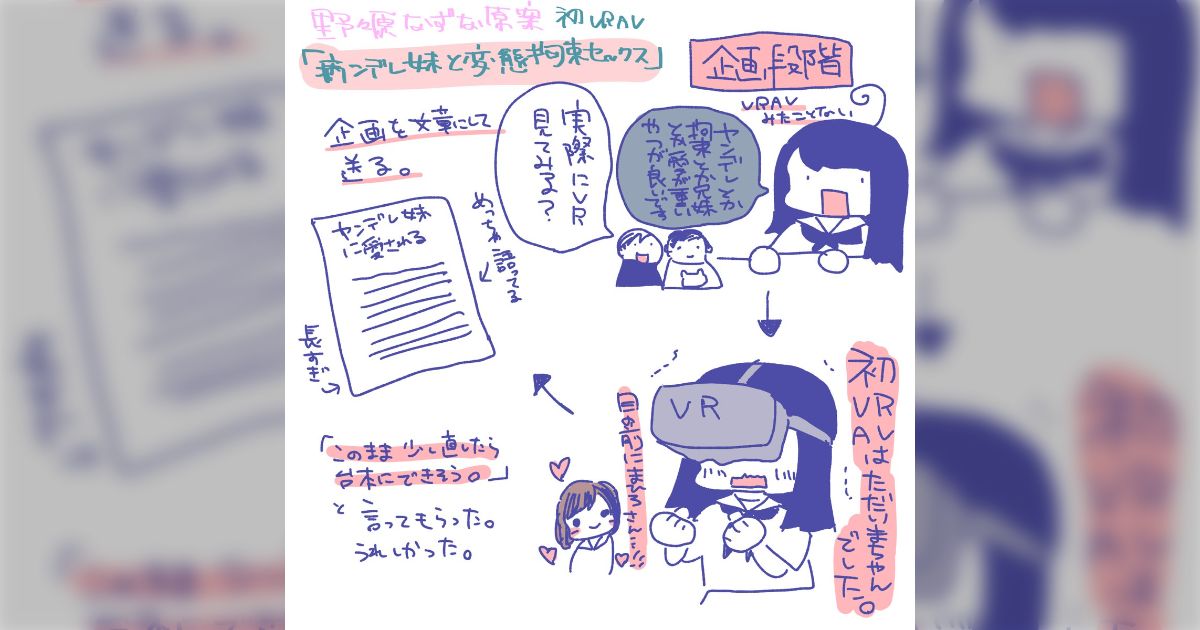 野々原なずな原案 初VRAV
「病ンデレ妹と変態拘束セックス」
企画段階
VRAV
みたことない
ヤンデレとか
拘束とか兄妹
とか愛が重い
やつが良いです
実際にVR
見てみる？
初VRはただいまちゃん
VAVでした。
目の前にまひろさん…!!
VR
企画を文章にして
送る。
ヤンデレ妹
に愛される
めっちゃ語ってる
長すぎ
「このまま少し直したら
台本にできそう。」
と言ってもらった。
うれしかった。